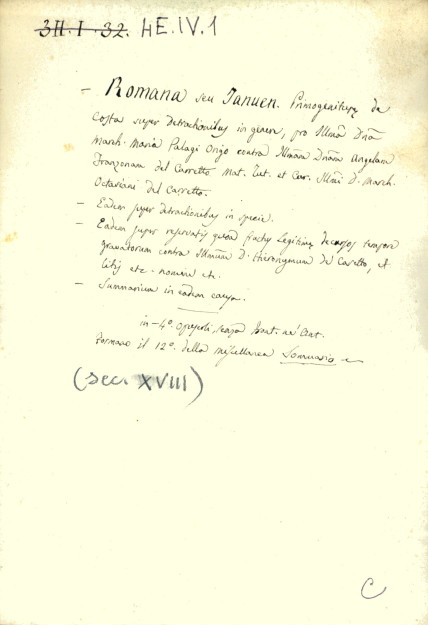 3H.I.32. HE.IV.1
– Romana seu Januen. Primogeniturę de
Costa super detractionibus in genere, pro Illmâ Dnâ
March. Maria Palagi Origo contra Illmam Dnam Angelam
Franzonam del Carretto Mat. Tut. et Cur. Illmi D. March.
Octaviani del Carretto.
– Eadem super detractionibus in specie.
– Eadem super reservatis quoad fructus Legitimę decursos tempore
gravatorum contra Illmum D. Hieronymum de Caretto, et
litis etc. nomine etc.
– Summarium in eadem causa.
in-4º. opuscoli, senza
Formano il 12º. della miscellanea Sommario
(sec. XVIII)
C